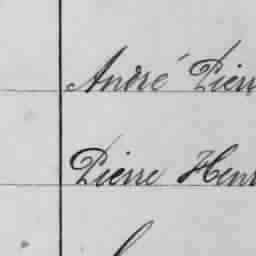 André Pierr
Pierre Henr